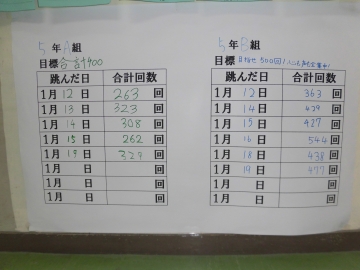 5年A組
目標 合計900
跳んだ日 合計回数
1月12日 263回
1月13日 323回
1月14日 308回
1月15日 262回
1月19日 329回
1月 日 回
1月 日 回
1月 日 回
5年B組
目標 目指せ500回!
跳んだ日 合計回数
1月12日 363回
1月14日 439回
1月15日 427回
1月16日 544回
1月18日 438回
1月19日 477回
1月 日 回
1月 日 回